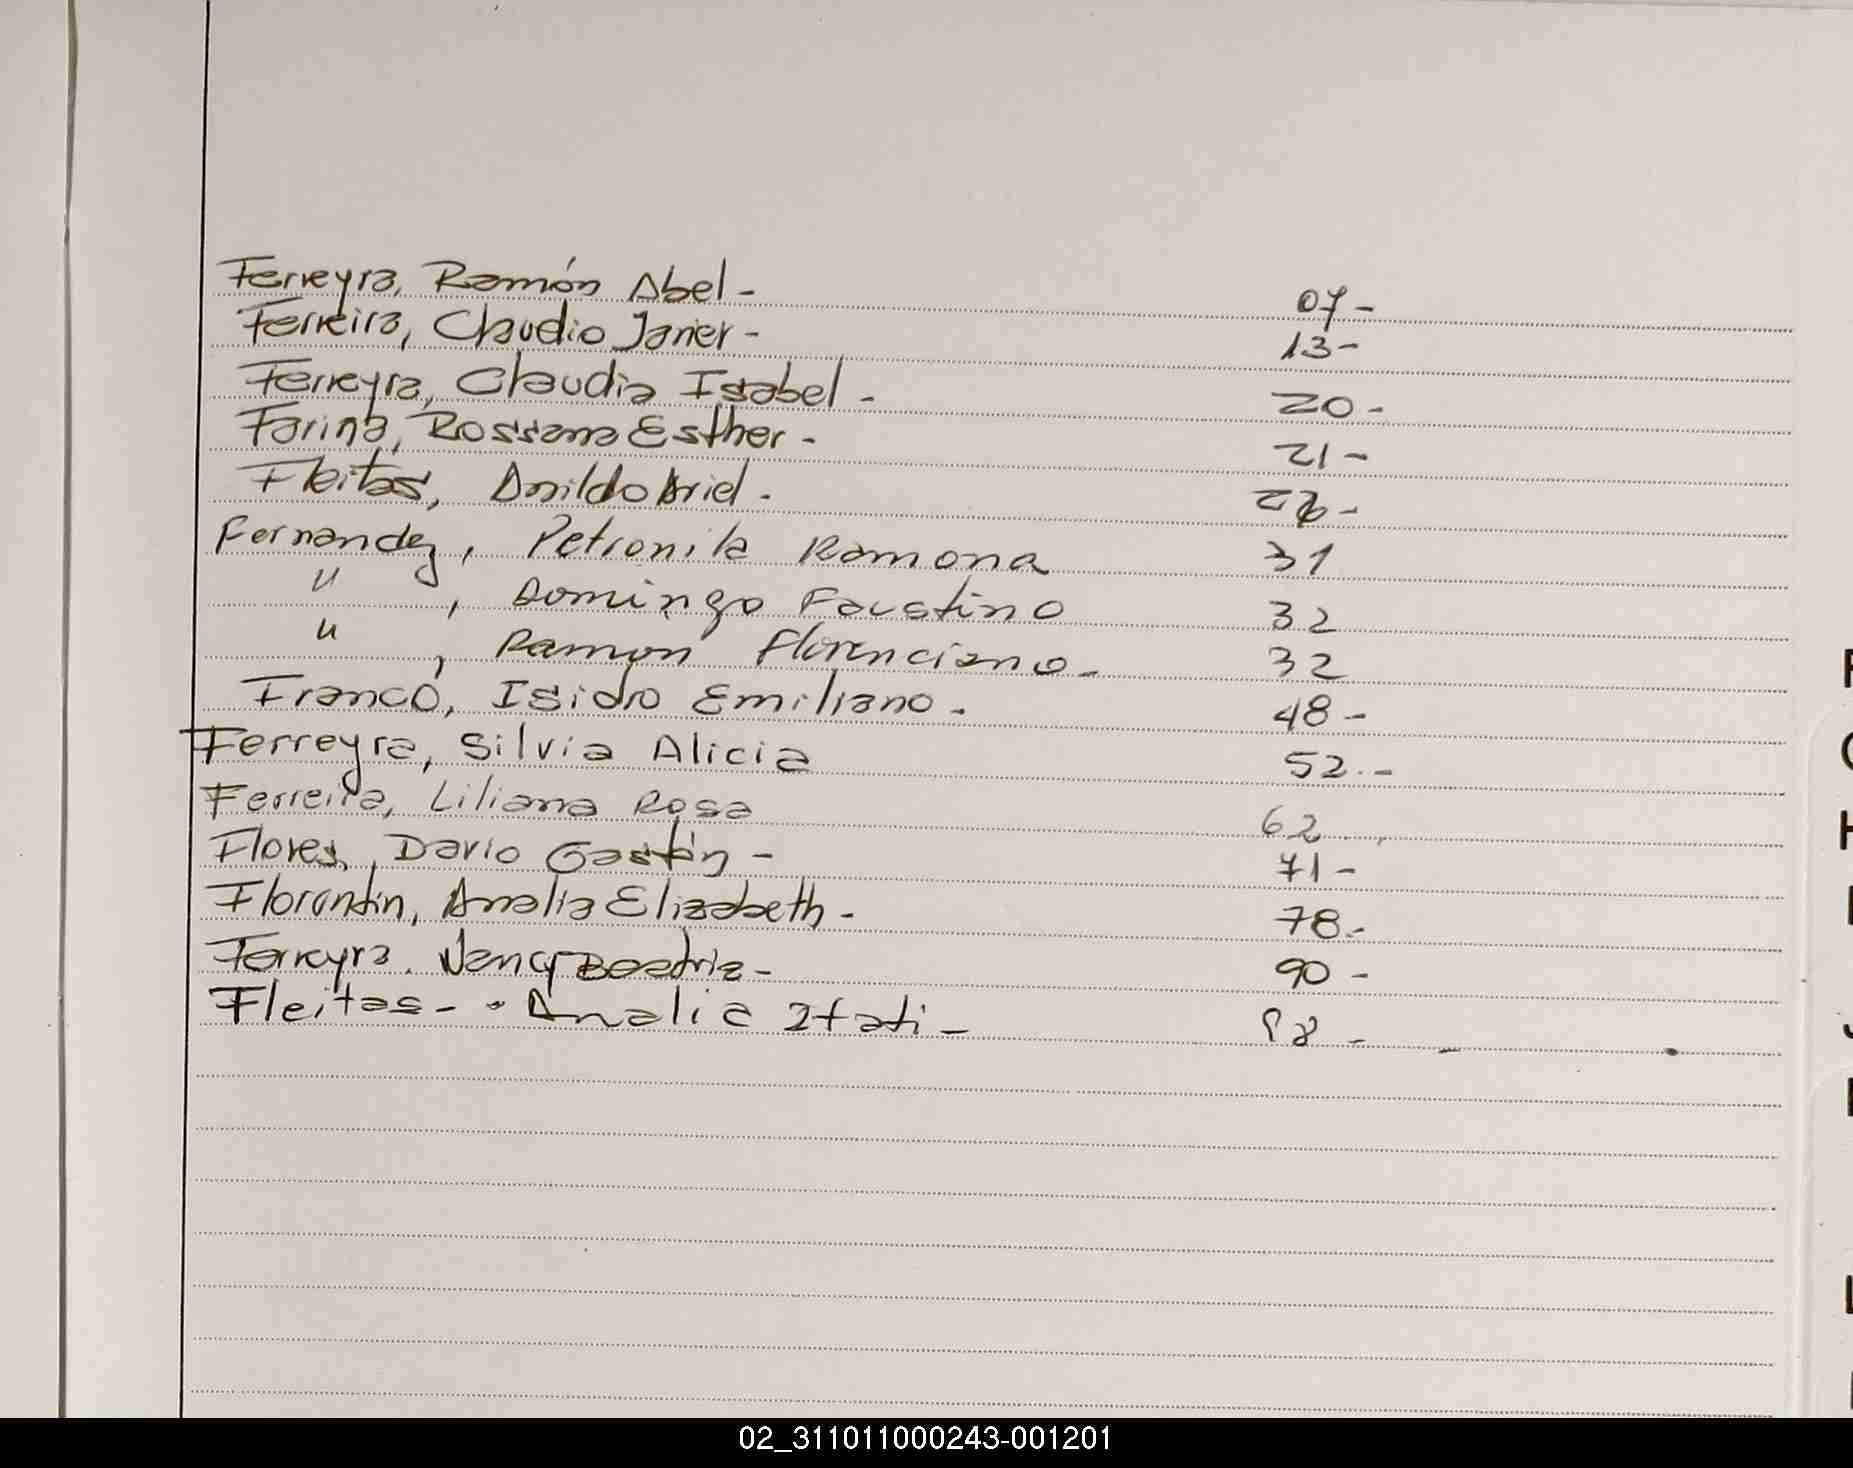 Ferreyra, Ramón Abel - 07 -
Ferreira, Claudio Javier - 13 -
Ferreyra, Claudia Isabel - 20 -
Farina, Rossana Esther - 21 -
Fleitas, Anildo Ariel - 26 -
Fernandez, Petronila Ramona 31
" , Domingo Faustino 32
" , Ramon Florenciano - 32
Franco, Isidro Emiliano - 48 -
Ferreyra, Silvia Alicia 52 -
Ferreira, Liliana Rosa 62
Flores, Dario Gastón - 71 -
Florentin, Analia Elizabeth - 78 -
Ferreyra. Nancy Beatriz - 90 -
Fleitas - Analia Itati - 98 -
F
H
L
02_311011000243-001201